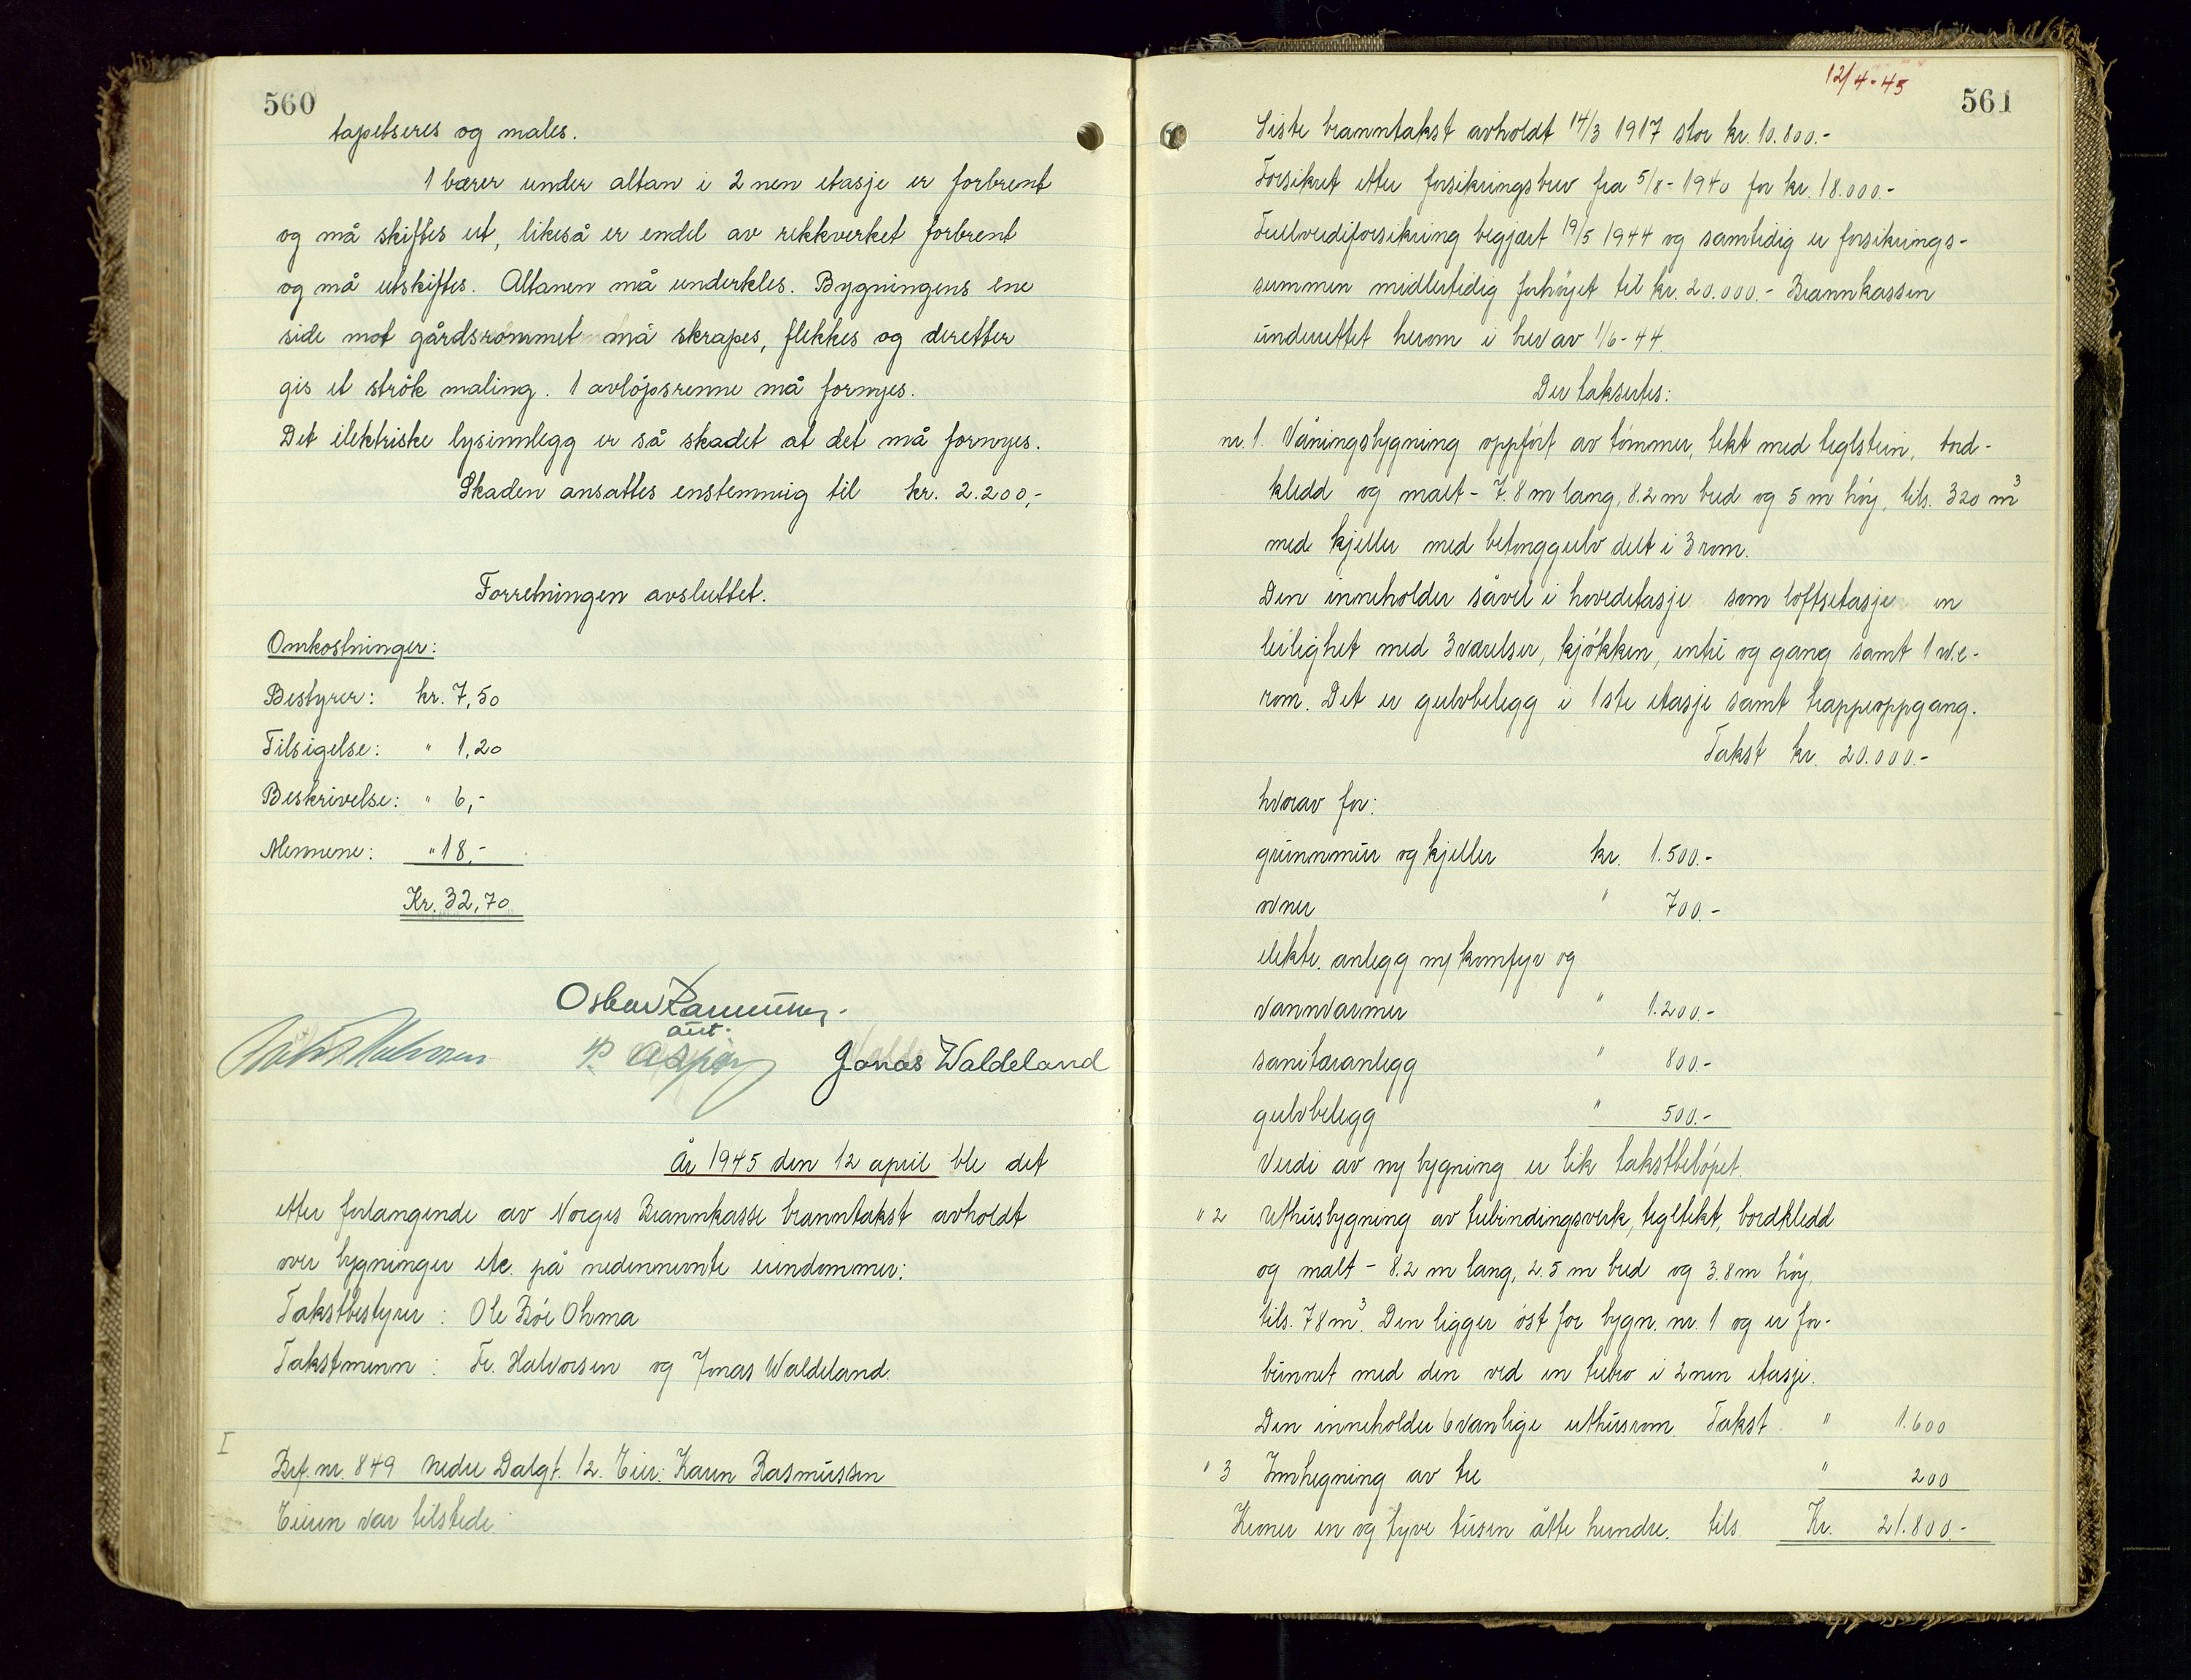 560
tapetseres og males.
1 bærer under altan i 2nen etasje er forbrent
og må skiftes ut, likeså er endel av rekkverket forbrent
og må utskiftes. Altanen må underkles. Bygningens ene
side mot gårdsrommet må skrapes, flekkes og deretter
gis et strøk maling. 1 avløpsrenne må fornyes.
Det elektriske lysinnlegg er så skadet at det må fornyes.
Skaden ansattes enstemmig til kr. 2.200,-
Forretningen avsluttet.
Omkostninger:
Bestyrer: kr. 7,50
Tilsigelse: " 1,20
Beskrivelse: " 6,-
Mennene: " 18,-
Kr. 32,70
Jonas Waldeland
År 1945 den 12 april ble det
etter forlangende av Norges Brannkasse branntakst avholdt
over bygninger etc. på nedennevnte eiendommer:
Takstbestyrer: Ole Bøe Ohma
Takstmenn: Fr. Halvorsen og Jonas Waldeland.
I
Brf. nr. 849 Nedre Dalgt. 12. Eier: Karen Rasmussen
Eieren var tilstede
12/4-45
561
Siste branntakst avholdt 14/3 1917 stor kr. 10.800.-
Forsikret etter forsikringsbrev fra 5/8-1940 for kr. 18.000.-
Fullverdiforsikring begjært 19/5 1944 og samtidig er forsikrings-
summen midlertidig forhøyet til kr. 20.000.- Brannkassen
underrettet herom i brev av 1/6-44.
Der taksertes:
nr. 1. Våningsbygning oppført av tømmer, tekt med teglstein, bord-
kledd og malt - 7.8 m lang, 8.2 m bred og 5 m høy, tils. 320 m3
med kjeller med betonggulv delt i 3 rom.
Den inneholder såvel i hovedetasje som loftsetasje en
leilighet med 3 værelser, kjøkken, entré og gang samt 1 w.c-
rom. Det er gulvbelegg i 1ste etasje samt trappeoppgang.
Takst kr. 20.000.-
hvorav for:
grunnmur og kjeller kr. 1.500.-
ovner " 700.-
elektr. anlegg m/komfyr og
vannvarmer " 1.200.-
sanitæranlegg " 800.-
gulvbelegg " 500.-
Verdi av ny bygning er lik takstbeløpet.
" 2 Uthusbygning av trebindingsverk, tegltekt, bordkledd
og malt - 8.2 m lang, 2.5 m bred og 3.8 m høy,
tils. 78 m3. Den ligger øst for bygn. nr. 1 og er for-
bunnet med den ved en trebro i 2nen etasje.
Den inneholder 6 vanlige uthusrom. Takst " 1.600
" 3 Innhegning av tre " 200
Kroner en og tyve tusen åtte hundre. tils. Kr. 21.800.-